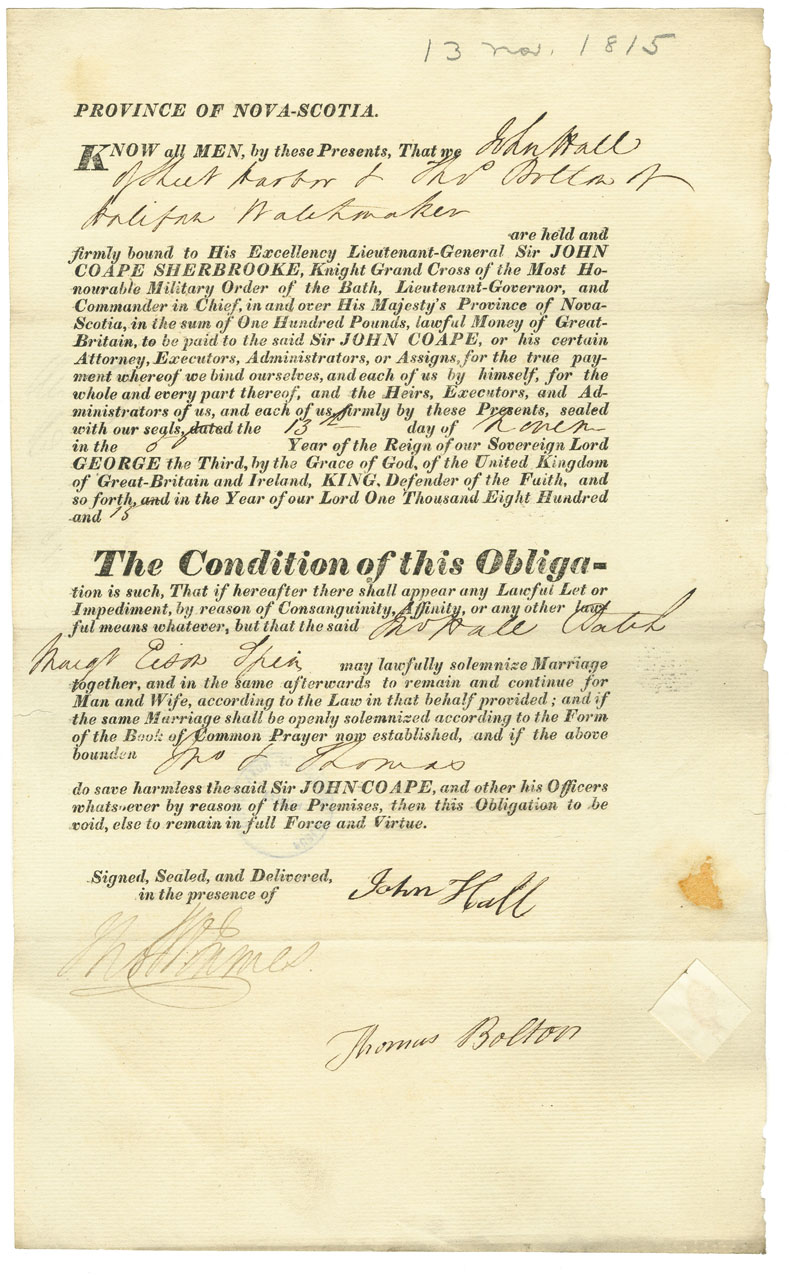 13 Nov. 1815
PROVINCE OF NOVA-SCOTIA.
KNOW all MEN, by these Presents, That we John Hall
of Sheet Harbor & Thos Bolton of
Halifax Watchmaker
are held and
firmly bound to His Excellency Lieutenant-General Sir JOHN
COAPE SHERBROOKE, Knight Grand Cross of the Most Ho-
nourable Military Order of the Bath, Lieutenant-Governor, and
Commander in Chief, in and over His Majesty's Province of Nova-
Scotia, in the sum of One Hundred Pounds, lawful Money of Great-
Britain, to be paid to the said Sir JOHN COAPE, or his certain
Attorney, Executors, Administrators, or Assigns, for the true pay-
ment whereof we bind ourselves, and each of us by himself, for the
whole and every part thereof, and the Heirs, Executors, and Ad-
ministrators of us, and each of us, firmly by these Presents, sealed
with our seals, dated the 13th day of Novem
in the Year of the Reign of our Sovereign Lord
GEORGE the Third, by the Grace of God, of the United Kingdom
of Great-Britain and Ireland, KING, Defender of the Faith, and
so forth, and in the Year of our Lord One Thousand Eight Hundred
and 15
The Condition of this Obliga-
tion is such, That if hereafter there shall appear any Lawful Let or
Impediment, by reason of Consanguinity, Affinity, or any other law-
ful means whatever, but that the said Jno Hall Batch
Margt Spin may lawfully solemnize Marriage
together, and in the same afterwards to remain and continue for
Man and Wife, according to the Law in that behalf provided; and if
the same Marriage shall be openly solemnized according to the Form
of the Book of Common Prayer now established, and if the above
bounden Jno & Thomas
do save harmless the said Sir JOHN COAPE, and other his Officers
whatsoever by reason of the Premises, then this Obligation to be
void, else to remain in full Force and Virtue.
Signed, Sealed, and Delivered,
in the presence of
John Hall
Thos James.
Thomas Bolton